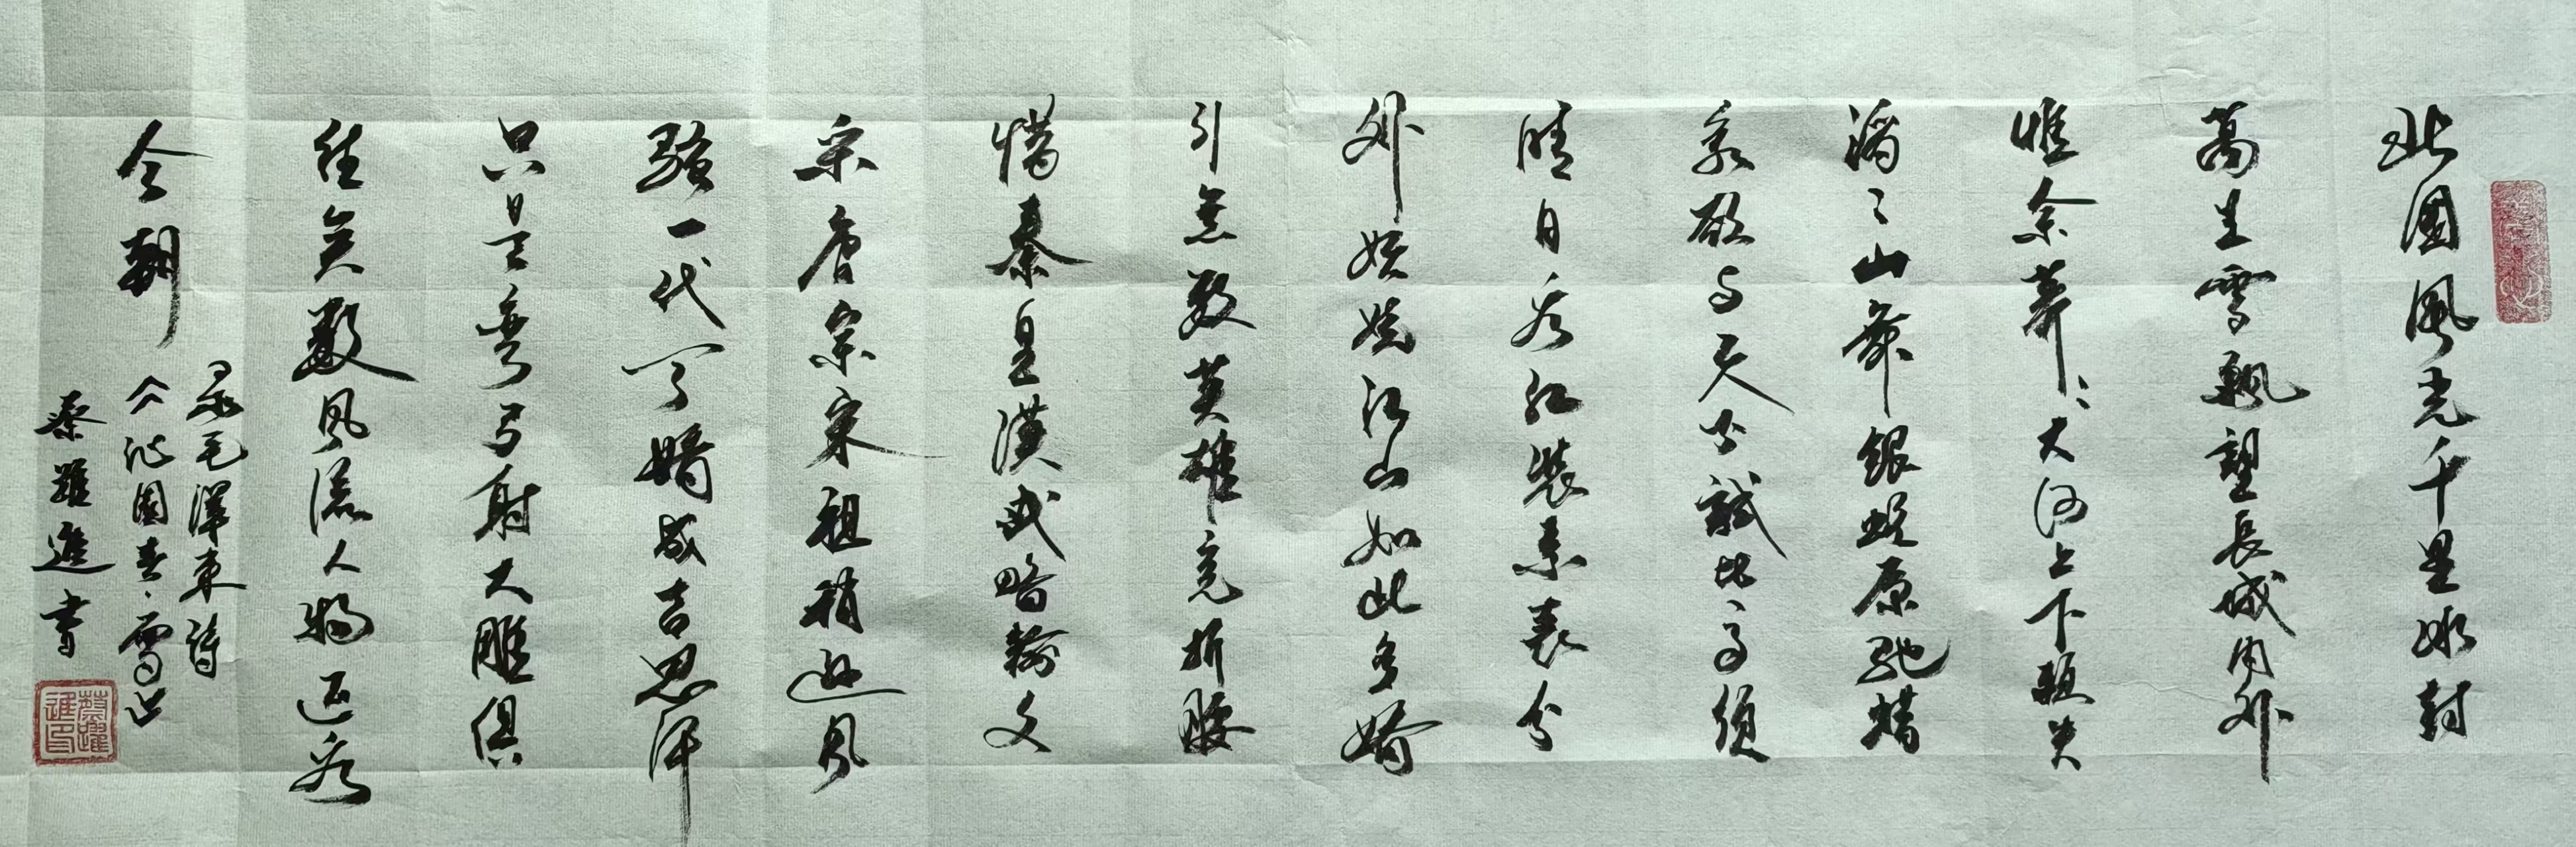 北國風光千里冰封
萬里雪飄望長城内外
惟余莽〻大河上下頓失
滔〻山舞銀蛇原馳蜡
象欲与天公試比高須
晴日看红装素裹分
外妖娆江山如此多嬌
引無数英雄竞折腰
惜秦皇漢武略輸文
采唐宗宋祖稍逊風
骚一代天嬌成吉思汗
只是弯弓射大雕俱
往矣數風流人物还看
今朝
录毛澤東詩
《沁園春·雪》
蔡躍進書
蔡躍進印